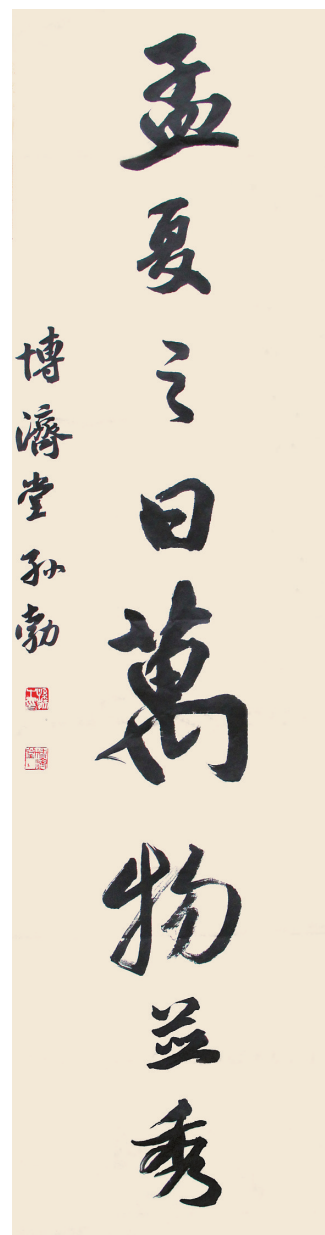 孟夏之日萬物並秀
博濟堂孙勃